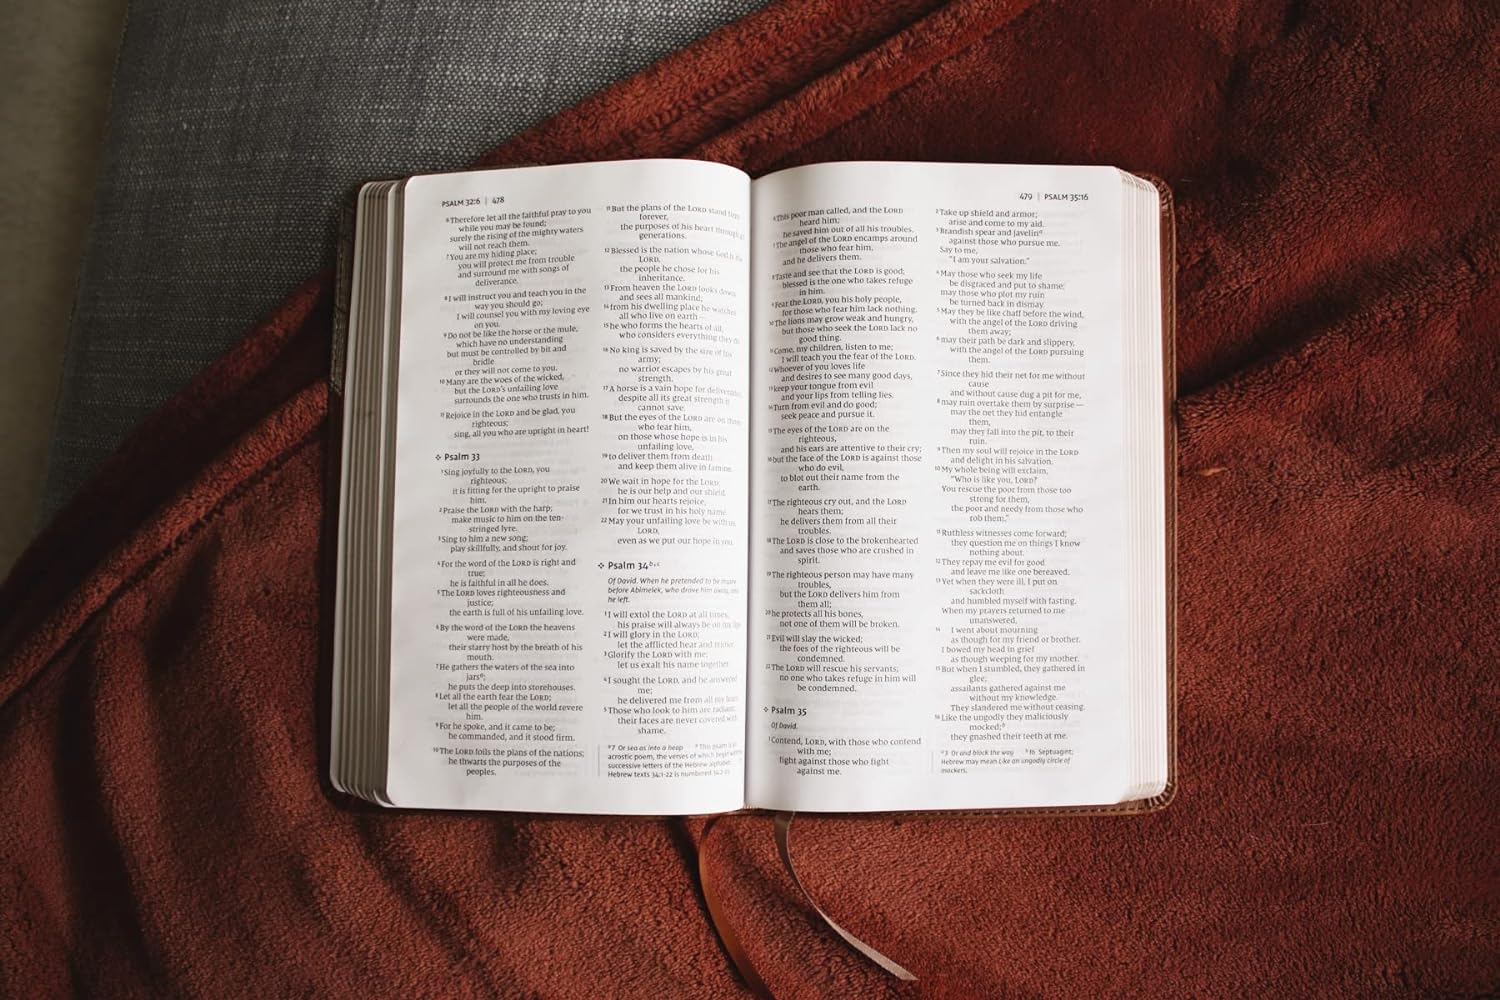 PSALM 32:6 | 478
6Therefore let all the faithful pray to you
while you may be found;
surely the rising of the mighty waters
will not reach them.
7You are my hiding place;
you will protect me from trouble
and surround me with songs of
deliverance.
8I will instruct you and teach you in the
way you should go;
I will counsel you with my loving eye
on you.
9Do not be like the horse or the mule,
which have no understanding
but must be controlled by bit and
bridle
or they will not come to you.
10Many are the woes of the wicked,
but the LORD's unfailing love
surrounds the one who trusts in him.
11Rejoice in the LORD and be glad, you
righteous;
sing, all you who are upright in heart!
Psalm 33
1Sing joyfully to the LORD, you
righteous;
it is fitting for the upright to praise
him.
2Praise the LORD with the harp;
make music to him on the ten-
stringed lyre.
3Sing to him a new song;
play skillfully, and shout for joy.
4For the word of the LORD is right and
true;
he is faithful in all he does.
5The LORD loves righteousness and
justice;
the earth is full of his unfailing love.
6By the word of the LORD the heavens
were made,
their starry host by the breath of his
mouth.
7He gathers the waters of the sea into
jarsa;
he puts the deep into storehouses.
8Let all the earth fear the LORD;
let all the people of the world revere
him.
9For he spoke, and it came to be;
he commanded, and it stood firm.
10The LORD foils the plans of the nations;
he thwarts the purposes of the
peoples.
11But the plans of the LORD stand firm
forever,
the purposes of his heart through all
generations.
12Blessed is the nation whose God is the
LORD,
the people he chose for his
inheritance.
13From heaven the LORD looks down
and sees all mankind;
14from his dwelling place he watches
all who live on earth—
15he who forms the hearts of all,
who considers everything they do.
16No king is saved by the size of his
army;
no warrior escapes by his great
strength.
17A horse is a vain hope for deliverance,
despite all its great strength it
cannot save.
18But the eyes of the LORD are on those
who fear him,
on those whose hope is in his
unfailing love,
19to deliver them from death
and keep them alive in famine.
20We wait in hope for the LORD;
he is our help and our shield.
21In him our hearts rejoice,
for we trust in his holy name.
22May your unfailing love be with us,
LORD,
even as we put our hope in you.
Psalm 34b,c
Of David. When he pretended to be insane
before Abimelek, who drove him away, and
he left.
1I will extol the LORD at all times;
his praise will always be on my lips.
2I will glory in the LORD;
let the afflicted hear and rejoice.
3Glorify the LORD with me;
let us exalt his name together.
4I sought the LORD, and he answered
me;
he delivered me from all my fears.
5Those who look to him are radiant;
their faces are never covered with
shame.
a7 Or sea as into a heap b This psalm is an
acrostic poem, the verses of which begin with
successive letters of the Hebrew alphabet.
Hebrew texts 34:1-22 is numbered 34:2-23.
479 | PSALM 35:16
6This poor man called, and the LORD
heard him;
he saved him out of all his troubles.
7The angel of the LORD encamps around
those who fear him,
and he delivers them.
8Taste and see that the LORD is good;
blessed is the one who takes refuge
in him.
9Fear the LORD, you his holy people,
for those who fear him lack nothing.
10The lions may grow weak and hungry,
but those who seek the LORD lack no
good thing.
11Come, my children, listen to me;
I will teach you the fear of the LORD.
12Whoever of you loves life
and desires to see many good days,
13keep your tongue from evil
and your lips from telling lies.
14Turn from evil and do good;
seek peace and pursue it.
15The eyes of the LORD are on the
righteous,
and his ears are attentive to their cry;
16but the face of the LORD is against those
who do evil,
to blot out their name from the
earth.
17The righteous cry out, and the LORD
hears them;
he delivers them from all their
troubles.
18The LORD is close to the brokenhearted
and saves those who are crushed in
spirit.
19The righteous person may have many
troubles,
but the LORD delivers him from
them all;
20he protects all his bones,
not one of them will be broken.
21Evil will slay the wicked;
the foes of the righteous will be
condemned.
22The LORD will rescue his servants;
no one who takes refuge in him will
be condemned.
Psalm 35
Of David.
1Contend, LORD, with those who contend
with me;
fight against those who fight
against me.
2Take up shield and armor;
arise and come to my aid.
3Brandish spear and javelina
against those who pursue me.
Say to me,
"I am your salvation."
4May those who seek my life
be disgraced and put to shame;
may those who plot my ruin
be turned back in dismay.
5May they be like chaff before the wind,
with the angel of the LORD driving
them away;
6may their path be dark and slippery,
with the angel of the LORD pursuing
them.
7Since they hid their net for me without
cause
and without cause dug a pit for me,
8may ruin overtake them by surprise—
may the net they hid entangle
them,
may they fall into the pit, to their
ruin.
9Then my soul will rejoice in the LORD
and delight in his salvation.
10My whole being will exclaim,
"Who is like you, LORD?
You rescue the poor from those too
strong for them,
the poor and needy from those who
rob them."
11Ruthless witnesses come forward;
they question me on things I know
nothing about.
12They repay me evil for good
and leave me like one bereaved.
13Yet when they were ill, I put on
sackcloth
and humbled myself with fasting.
When my prayers returned to me
unanswered,
14 I went about mourning
as though for my friend or brother.
I bowed my head in grief
as though weeping for my mother.
15But when I stumbled, they gathered in
glee;
assailants gathered against me
without my knowledge.
They slandered me without ceasing.
16Like the ungodly they maliciously
mocked;b
they gnashed their teeth at me.
a3 Or and block the way b16 Septuagint;
Hebrew may mean Like an ungodly circle of
mockers,